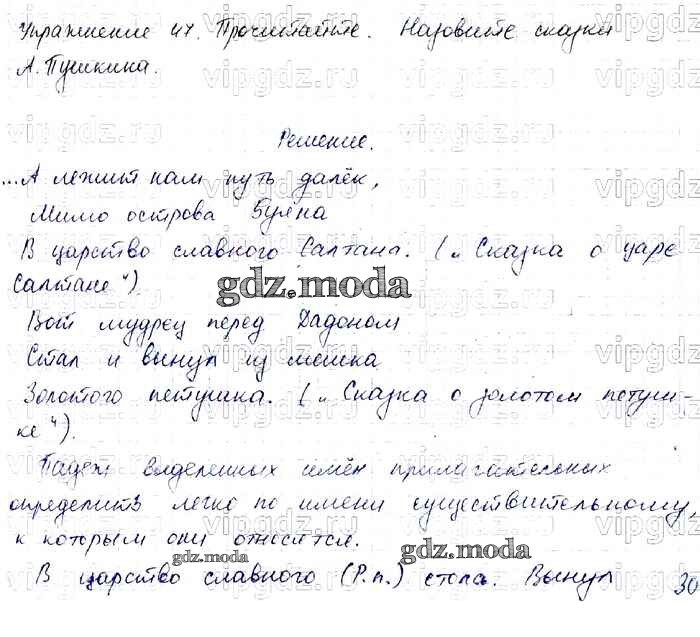 Упражнение 47. Прочитайте. Назовите сказки
А. Пушкина.
Решение.
...А лежит нам путь далёк,
Мимо острова Буяна
В царство славного Салтана. („Сказка о царе
Салтане").
gdz.moda
Вот мудрец перед Дадоном
Стал и вынул из мешка
Золотого петушка. („Сказка о золотом петуш-
ке").
Падеж выделенных имён прилагательных
определить легко по имени существительному,
к которым они относятся.
gdz.moda
gdz.moda
В царство славного (Р.п.) Вынул зо
vipgdz.ru